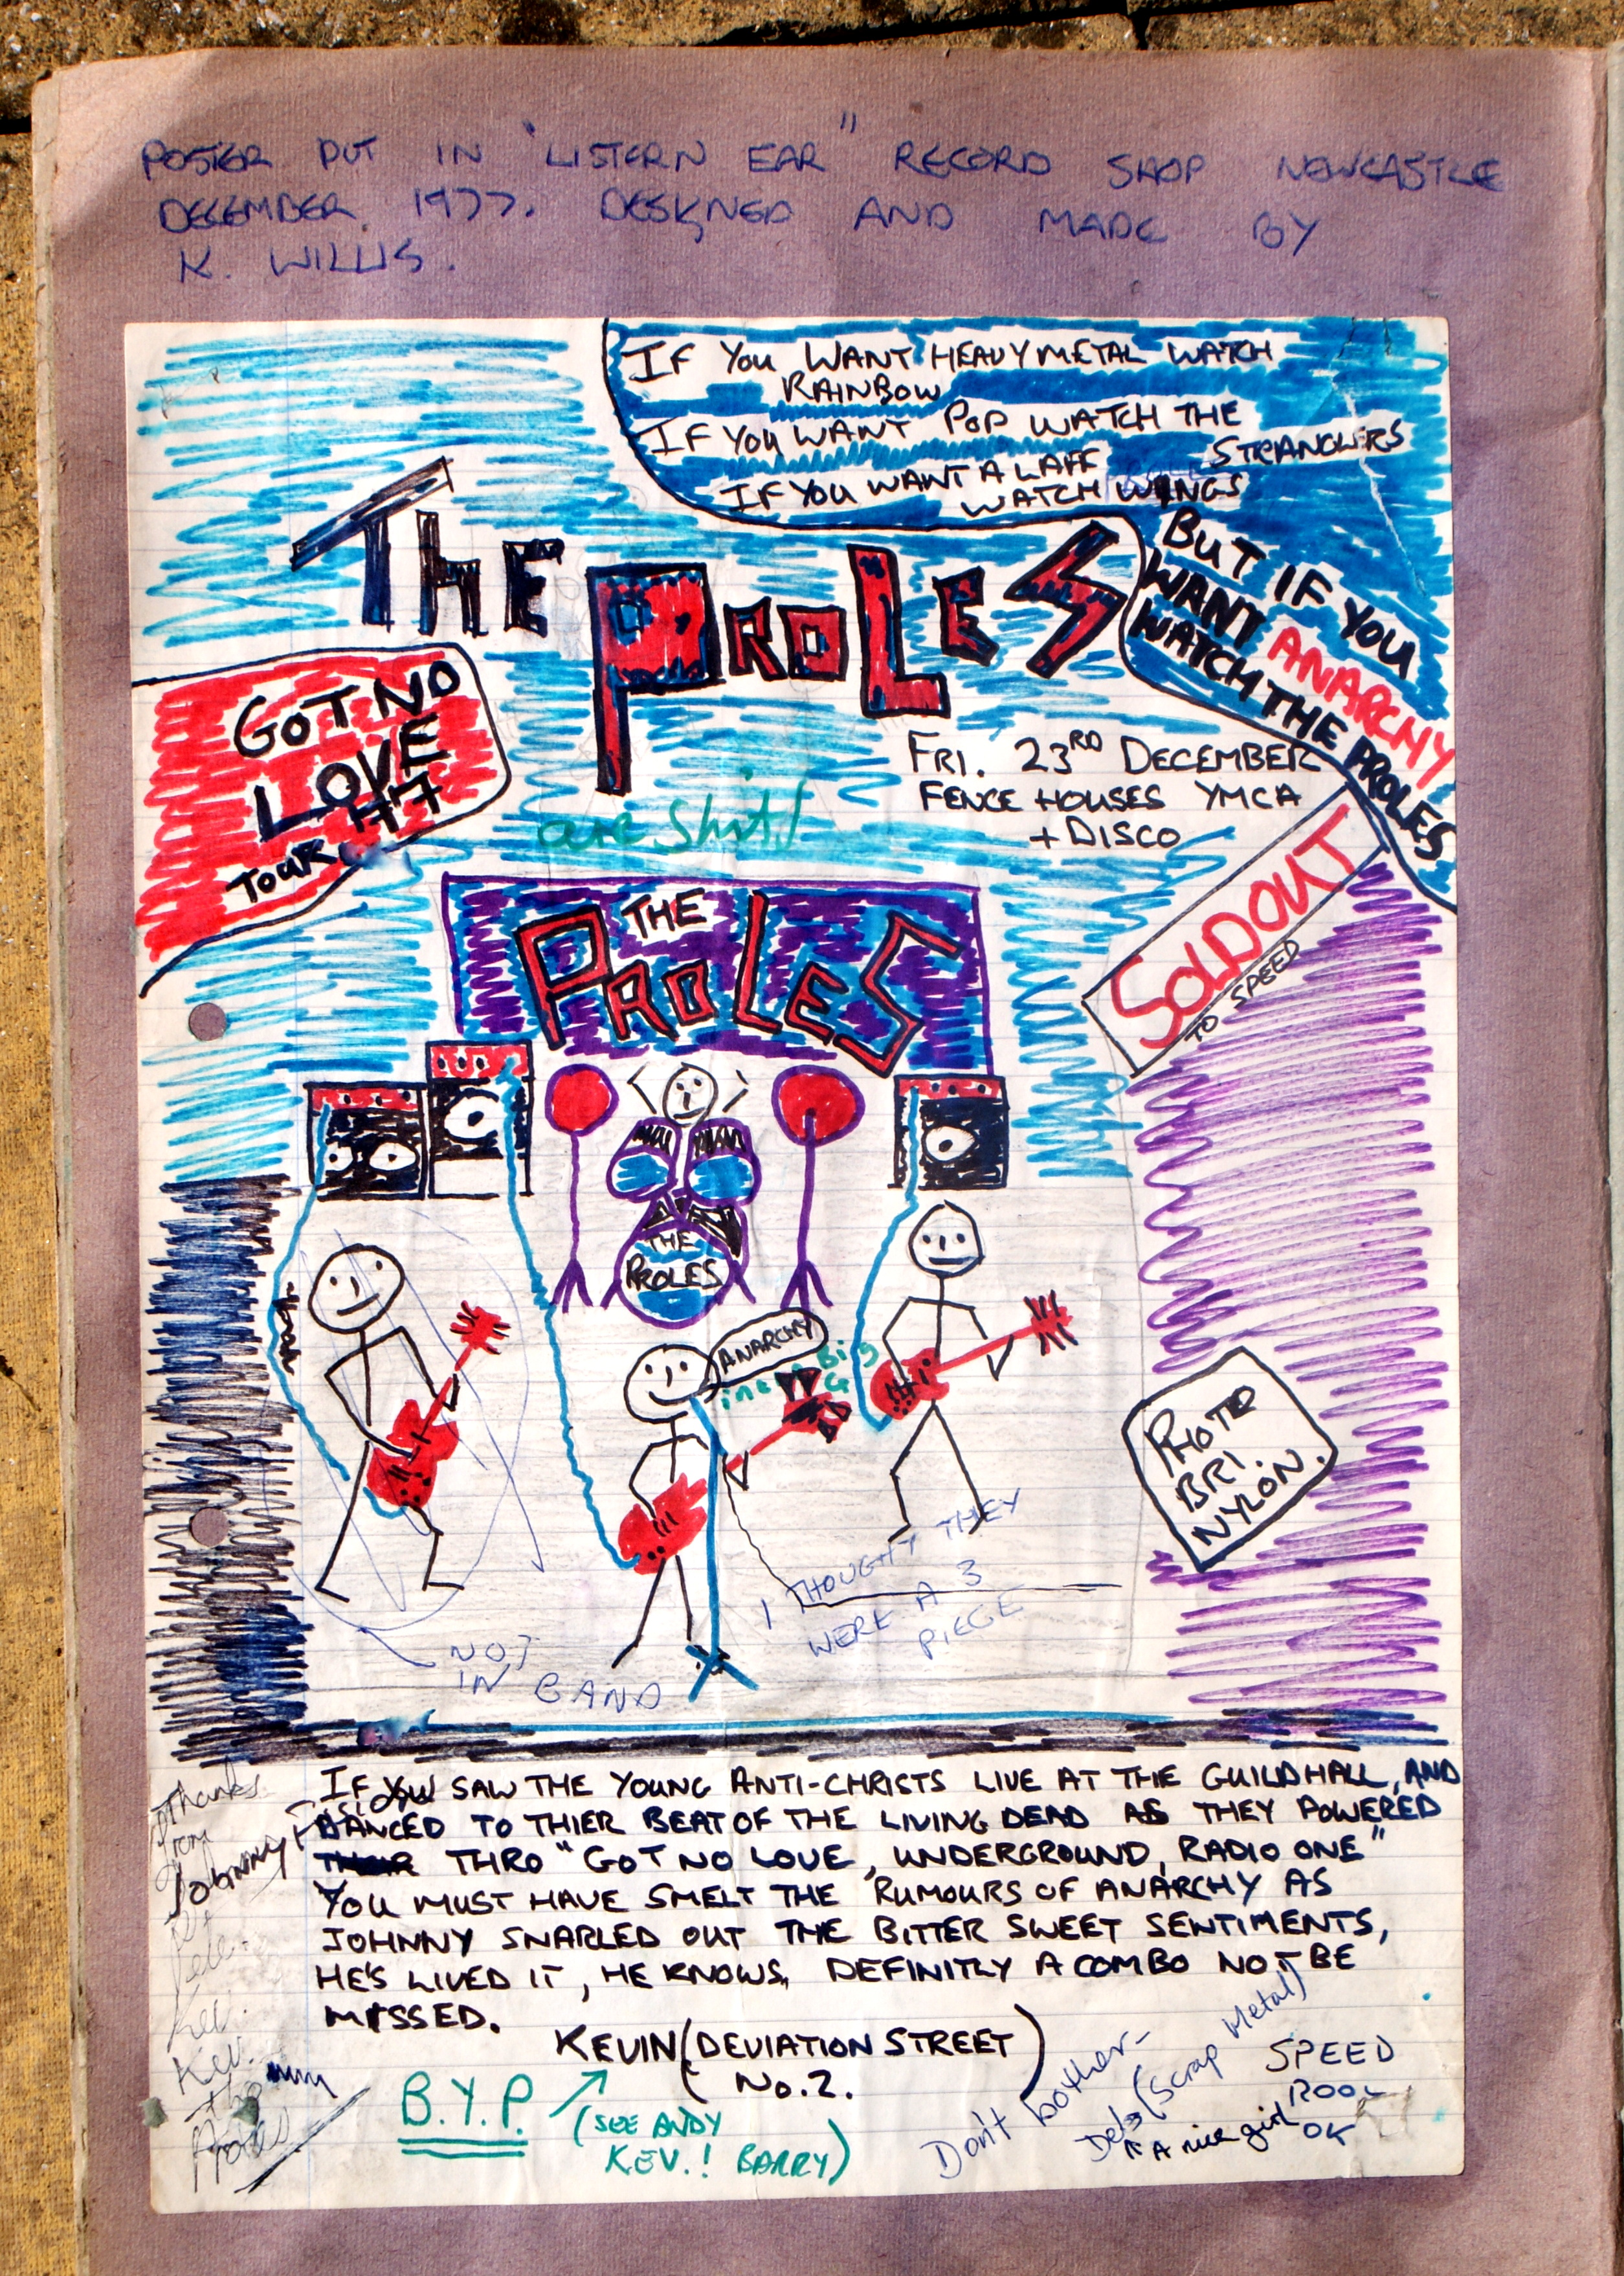 POSTER PUT IN "LISTERN EAR" RECORD SHOP NEWCASTLE
DECEMBER 1977. DESIGNED AND MADE BY
K. WILLIS.
IF YOU WANT HEAVY METAL WATCH
RAINBOW
IF YOU WANT POP WATCH THE
STRANGLERS
IF YOU WANT A LAFF
WATCH WINGS
BUT IF YOU
WANT ANARCHY
WATCH THE PROLES
THE PROLES
are shit!
GOT NO
LOVE
77
TOUR
FRI. 23RD DECEMBER
FENCE HOUSES YMCA
+ DISCO
SOLD OUT
TO SPEED
THE
PROLES
THE
PROLES
ANARCHY
in a Big
G
PHOTO
BRI.
NYLON.
I THOUGHT THEY
WERE A 3
PIECE
NOT
IN BAND
IF YOU SAW THE YOUNG ANTI-CHRISTS LIVE AT THE GUILDHALL, AND
DANCED TO THIER BEAT OF THE LIVING DEAD AS THEY POWERED
THRO "GOT NO LOVE, UNDERGROUND, RADIO ONE"
YOU MUST HAVE SMELT THE RUMOURS OF ANARCHY AS
JOHNNY SNARLED OUT THE BITTER SWEET SENTIMENTS,
HE'S LIVED IT, HE KNOWS, DEFINITLY A COMBO NOT BE
MISSED.
KEVIN (DEVIATION STREET)
No. 2.
Thanks
from
Johnny
Pete.
Kev.
Kev.
The
Proles
B.Y.P.
(SEE ANDY
KEV.! BARRY)
Don't bother-
Debs (Scrap Metal)
is A nice girl
SPEED
ROOL
OK